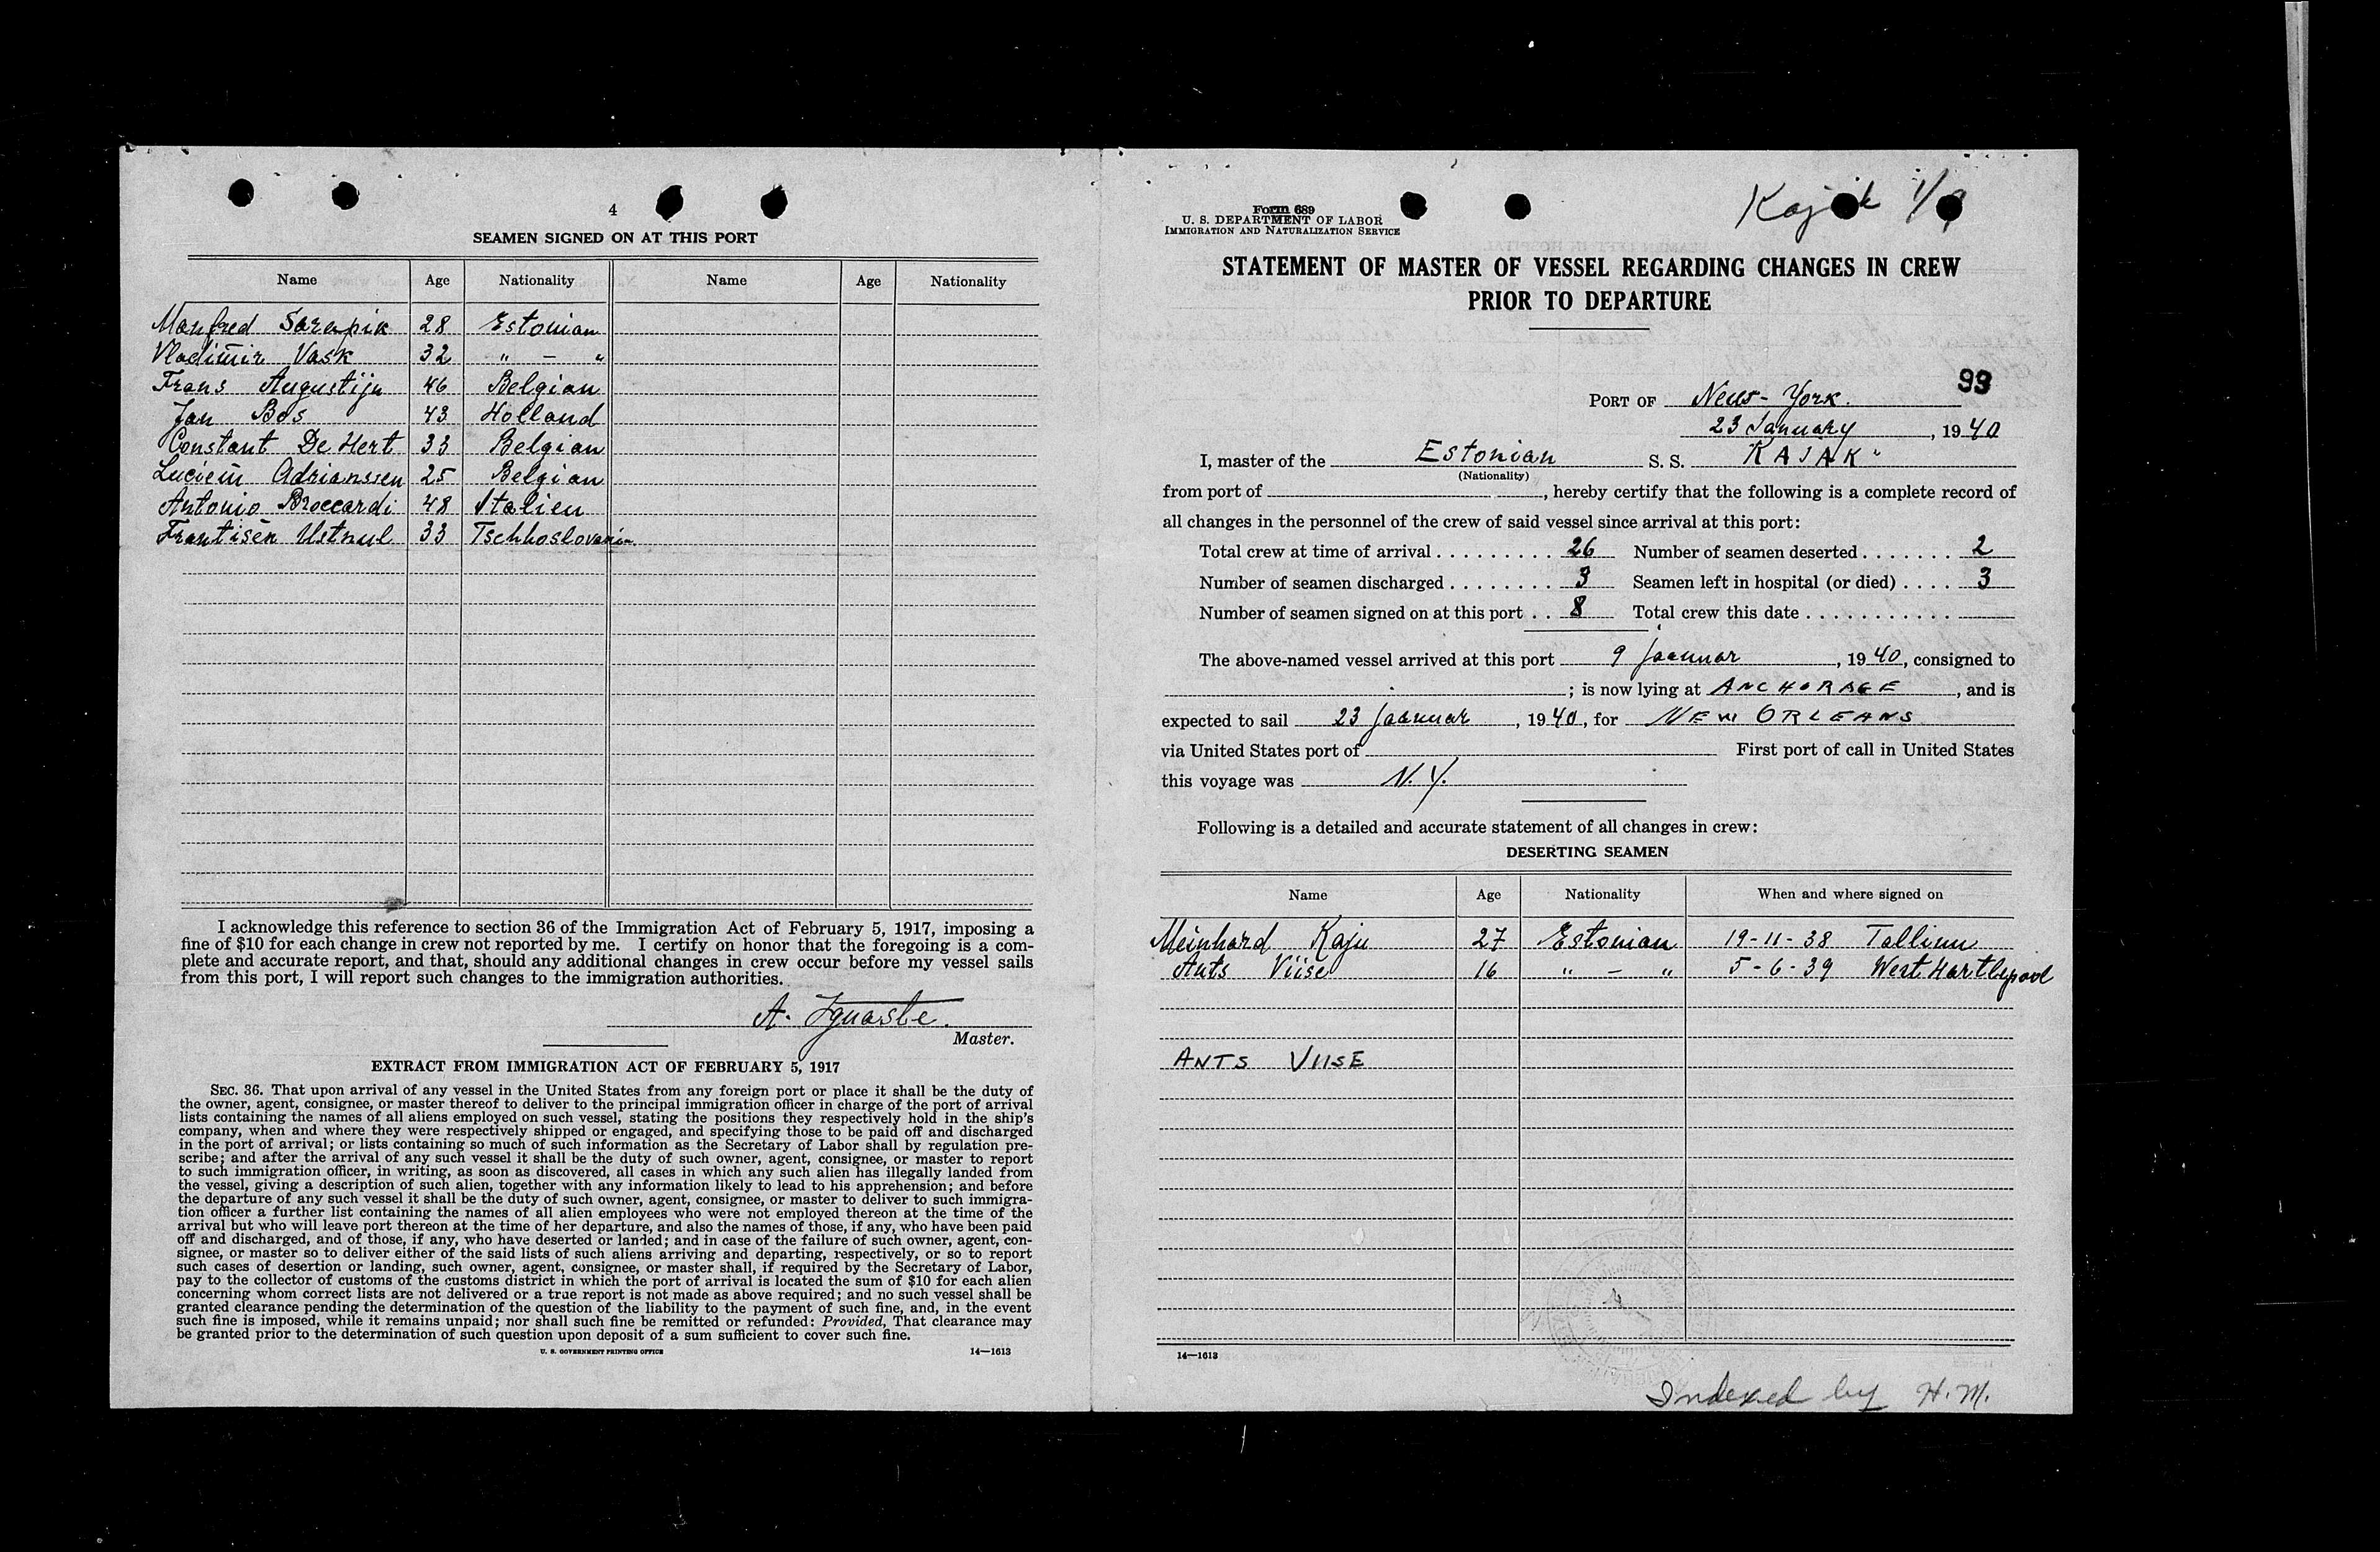 4
SEAMEN SIGNED ON AT THIS PORT
Name Age Nationality Name Age Nationality
Manfred Sarapik 28 Estonian
Vladimir Vask 32 " — "
Frans Augustijn 46 Belgian
Jan Bos 43 Holland
Constant De Hert 33 Belgian
Lucien Adrianssen 25 Belgian
Antonio Broccardi 48 Italien
33
I acknowledge this reference to section 36 of the Immigration Act of February 5, 1917, imposing a
fine of $10 for each change in crew not reported by me. I certify on honor that the foregoing is a com-
plete and accurate report, and that, should any additional changes in crew occur before my vessel sails
from this port, I will report such changes to the immigration authorities.
A.
Master.
EXTRACT FROM IMMIGRATION ACT OF FEBRUARY 5, 1917
SEC. 36. That upon arrival of any vessel in the United States from any foreign port or place it shall be the duty of
the owner, agent, consignee, or master thereof to deliver to the principal immigration officer in charge of the port of arrival
lists containing the names of all aliens employed on such vessel, stating the positions they respectively hold in the ship's
company, when and where they were respectively shipped or engaged, and specifying those to be paid off and discharged
in the port of arrival; or lists containing so much of such information as the Secretary of Labor shall by regulation pre-
scribe; and after the arrival of any such vessel it shall be the duty of such owner, agent, consignee, or master to report
to such immigration officer, in writing, as soon as discovered, all cases in which any such alien has illegally landed from
the vessel, giving a description of such alien, together with any information likely to lead to his apprehension; and before
the departure of any such vessel it shall be the duty of such owner, agent, consignee, or master to deliver to such immigra-
tion officer a further list containing the names of all alien employees who were not employed thereon at the time of the
arrival but who will leave port thereon at the time of her departure, and also the names of those, if any, who have been paid
off and discharged, and of those, if any, who have deserted or landed; and in case of the failure of such owner, agent, con-
signee, or master so to deliver either of the said lists of such aliens arriving and departing, respectively, or so to report
such cases of desertion or landing, such owner, agent, consignee, or master shall, if required by the Secretary of Labor,
pay to the collector of customs of the customs district in which the port of arrival is located the sum of $10 for each alien
concerning whom correct lists are not delivered or a true report is not made as above required; and no such vessel shall be
granted clearance pending the determination of the question of the liability to the payment of such fine, and, in the event
such fine is imposed, while it remains unpaid; nor shall such fine be remitted or refunded: Provided, That clearance may
be granted prior to the determination of such question upon deposit of a sum sufficient to cover such fine.
U. S. GOVERNMENT PRINTING OFFICE 14—1613
Form 689
U. S. DEPARTMENT OF LABOR
IMMIGRATION AND NATURALIZATION SERVICE
STATEMENT OF MASTER OF VESSEL REGARDING CHANGES IN CREW
PRIOR TO DEPARTURE
93
PORT OF New-York.
23 January, 1940
I, master of the Estonian S. S. KAJAK"
(Nationality)
from port of , hereby certify that the following is a complete record of
all changes in the personnel of the crew of said vessel since arrival at this port:
Total crew at time of arrival . . . . . . . . . 26 Number of seamen deserted . . . . . . . 2
Number of seamen discharged . . . . . . . . 3 Seamen left in hospital (or died) . . . . 3
Number of seamen signed on at this port . . 8 Total crew this date . . . . . . . . . . .
The above-named vessel arrived at this port 9 Jaanuar, 1940, consigned to
; is now lying at ANCHORAGE, and is
expected to sail 23 Jaanuar, 1940, for NEW ORLEANS
via United States port of First port of call in United States
this voyage was N.Y.
Following is a detailed and accurate statement of all changes in crew:
DESERTING SEAMEN
Name Age Nationality When and where signed on
Meinhard Kaju 27 Estonian 19-11-38 Tallinn
Ants Viise 16 " — " 5-6-39 West Hartlepool
ANTS VIISE
14—1613
Indexed by H.M.